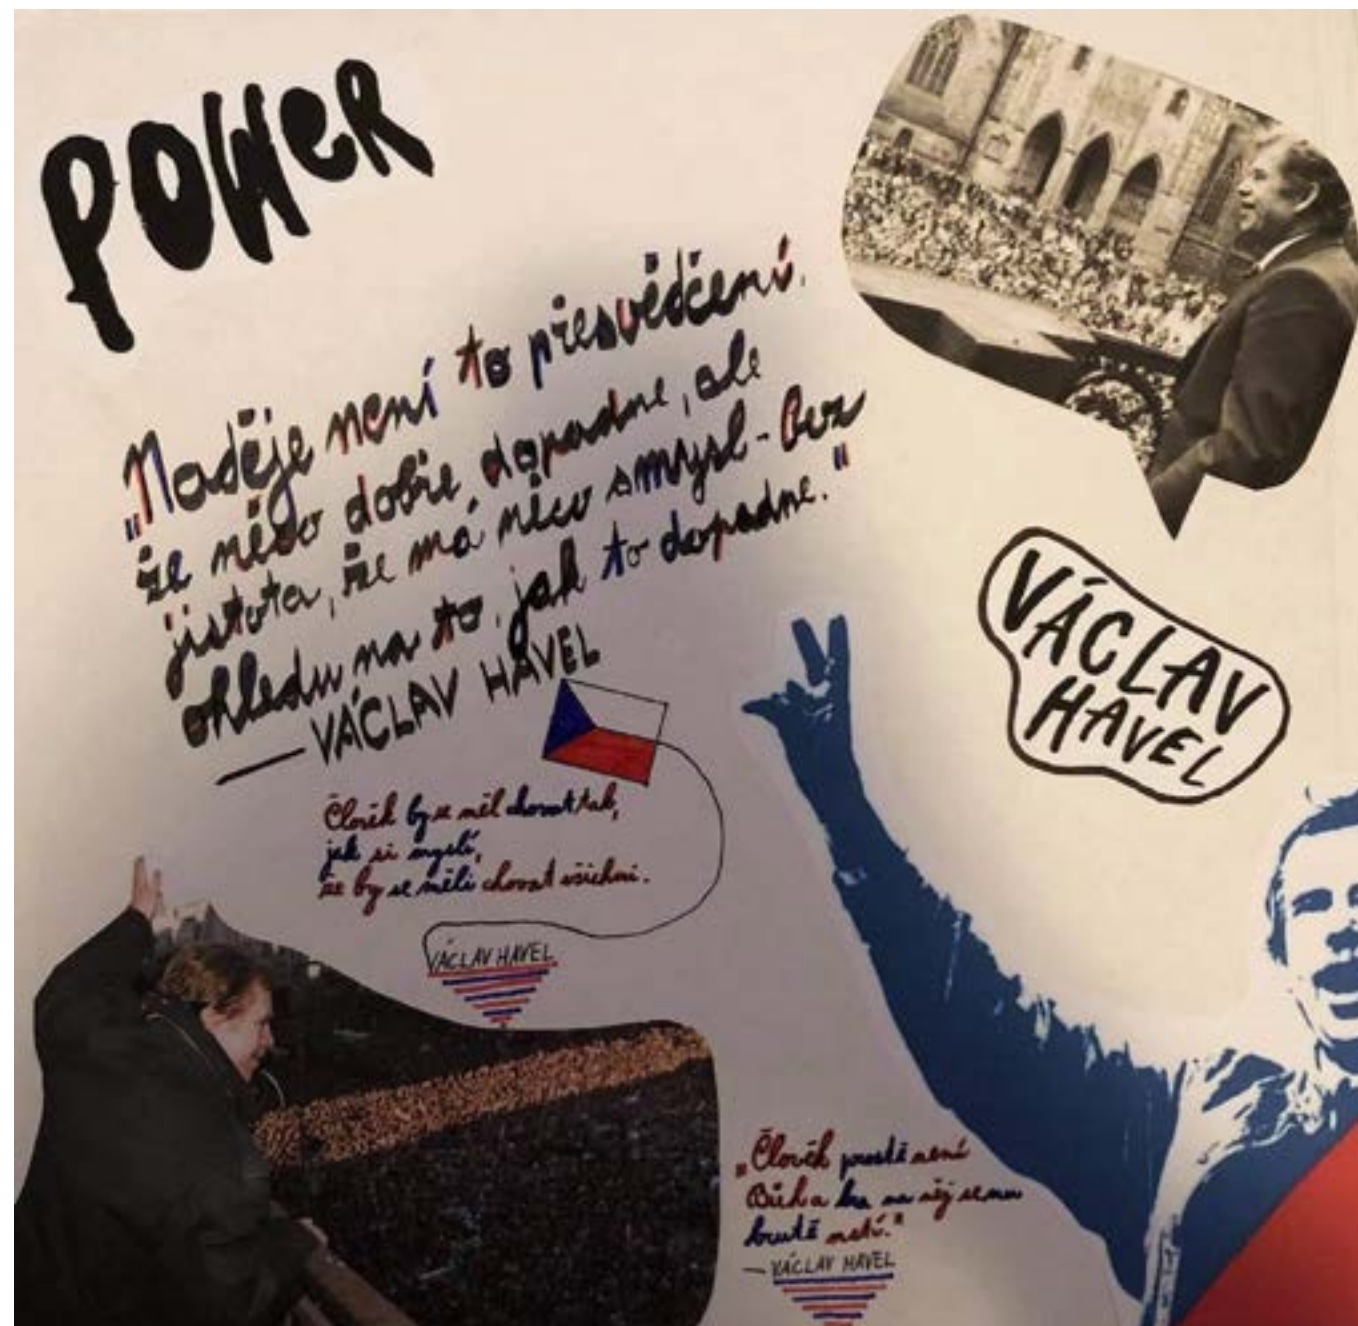 POWER
„Naděje není to přesvědčení,
že něco dobře dopadne, ale
jistota, že má něco smysl - bez
ohledu na to, jak to dopadne."
— VÁCLAV HAVEL
VÁCLAV
HAVEL
Člověk by se měl chovat tak,
jak si myslí,
že by se měli chovat všichni.
VÁCLAV HAVEL
„Člověk prostě není
Bůh a hra na něj se mu
krutě mstí."
— VÁCLAV HAVEL